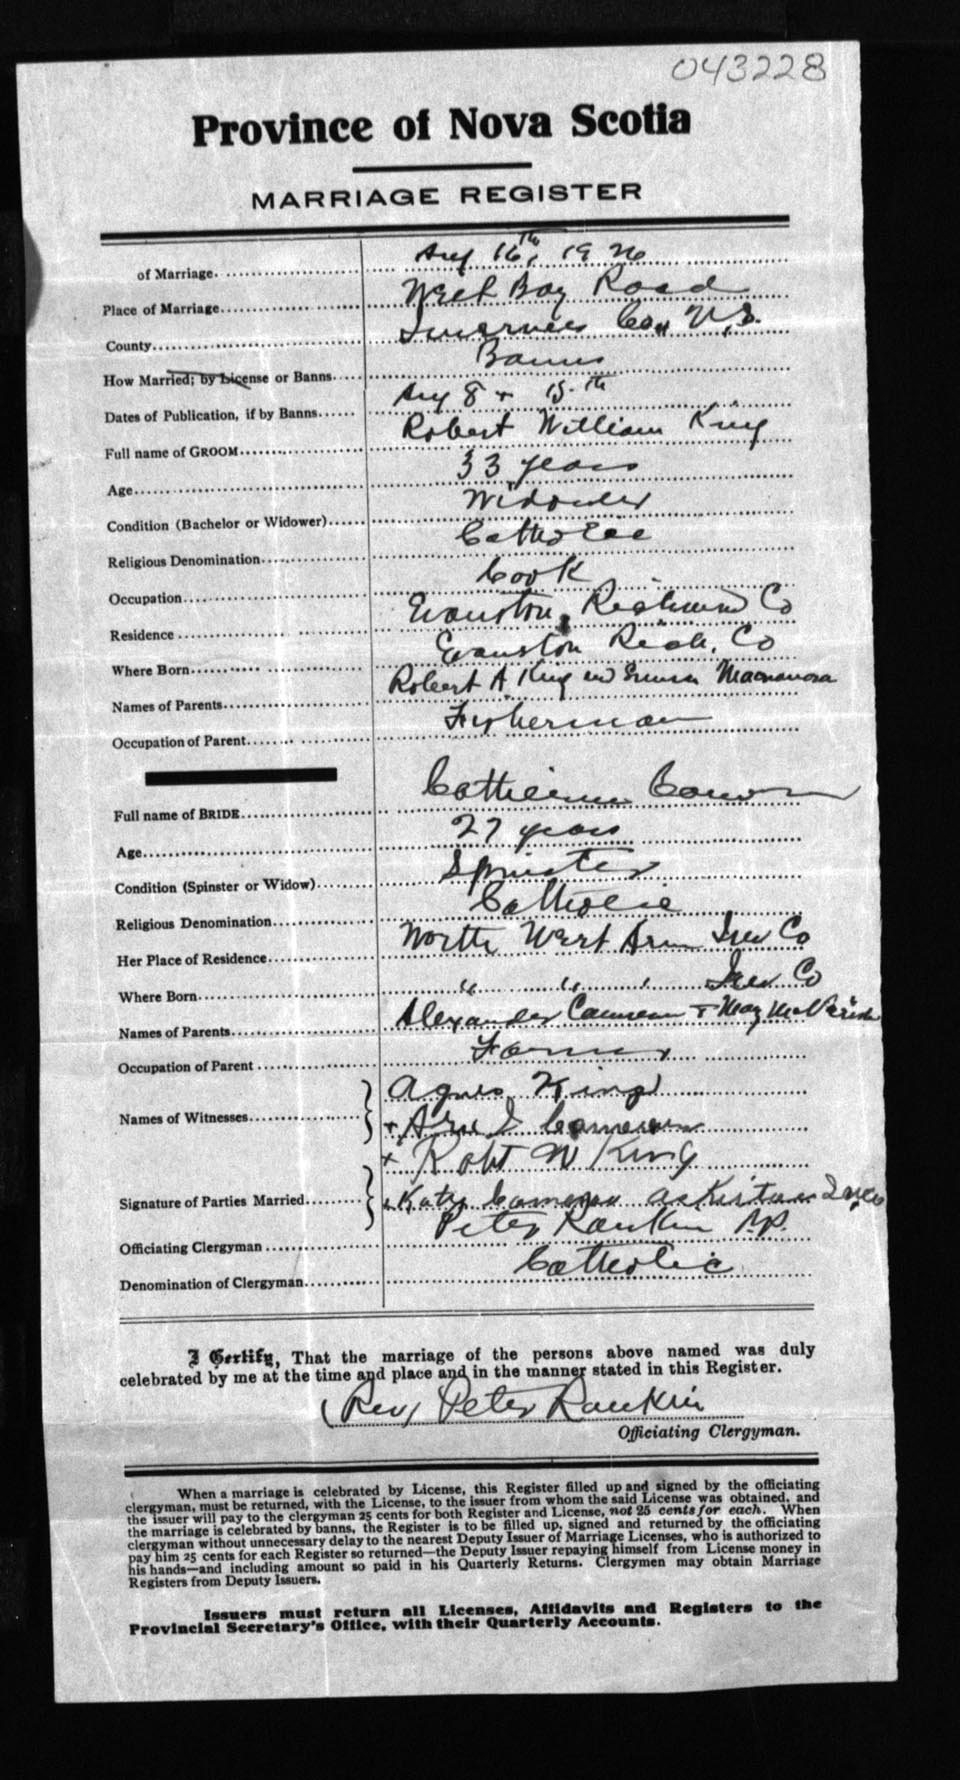 043228
Province of Nova Scotia
MARRIAGE REGISTER
of Marriage Aug 16th, 1926
Place of Marriage West Bay Road
County Inverness Co., N.S.
How Married; by License or Banns Banns
Dates of Publication, if by Banns Aug 8 + 15th
Full name of GROOM Robert William King
Age 33 years
Condition (Bachelor or Widower) Widower
Religious Denomination Catholic
Occupation Cook
Residence Evanston, Richmond Co
Where Born Evanston Rich. Co
Names of Parents Robert A. King
Occupation of Parent Fisherman
Full name of BRIDE Catherine Cameron
Age 27 years
Condition (Spinster or Widow) Spinster
Religious Denomination Catholic
Her Place of Residence North West Arm Inv Co
Where Born " " " Inv Co
Names of Parents Alexander Cameron + May
Occupation of Parent Farmer
Names of Witnesses Agnes King
+ Cameron
+ Robt W King
Signature of Parties Married Katy Cameron
Officiating Clergyman Peter Rankin P.P.
Denomination of Clergyman Catholic
I Certify, That the marriage of the persons above named was duly
celebrated by me at the time and place and in the manner stated in this Register.
(Rev) Peter Rankin
Officiating Clergyman.
When a marriage is celebrated by License, this Register filled up and signed by the officiating
clergyman, must be returned, with the License, to the issuer from whom the said License was obtained, and
the issuer will pay to the clergyman 25 cents for both Register and License, not 25 cents for each. When
the marriage is celebrated by banns, the Register is to be filled up, signed and returned by the officiating
clergyman without unnecessary delay to the nearest Deputy Issuer of Marriage Licenses, who is authorized to
pay him 25 cents for each Register so returned—the Deputy Issuer repaying himself from License money in
his hands—and including amount so paid in his Quarterly Returns. Clergymen may obtain Marriage
Registers from Deputy Issuers.
Issuers must return all Licenses, Affidavits and Registers to the
Provincial Secretary's Office, with their Quarterly Accounts.